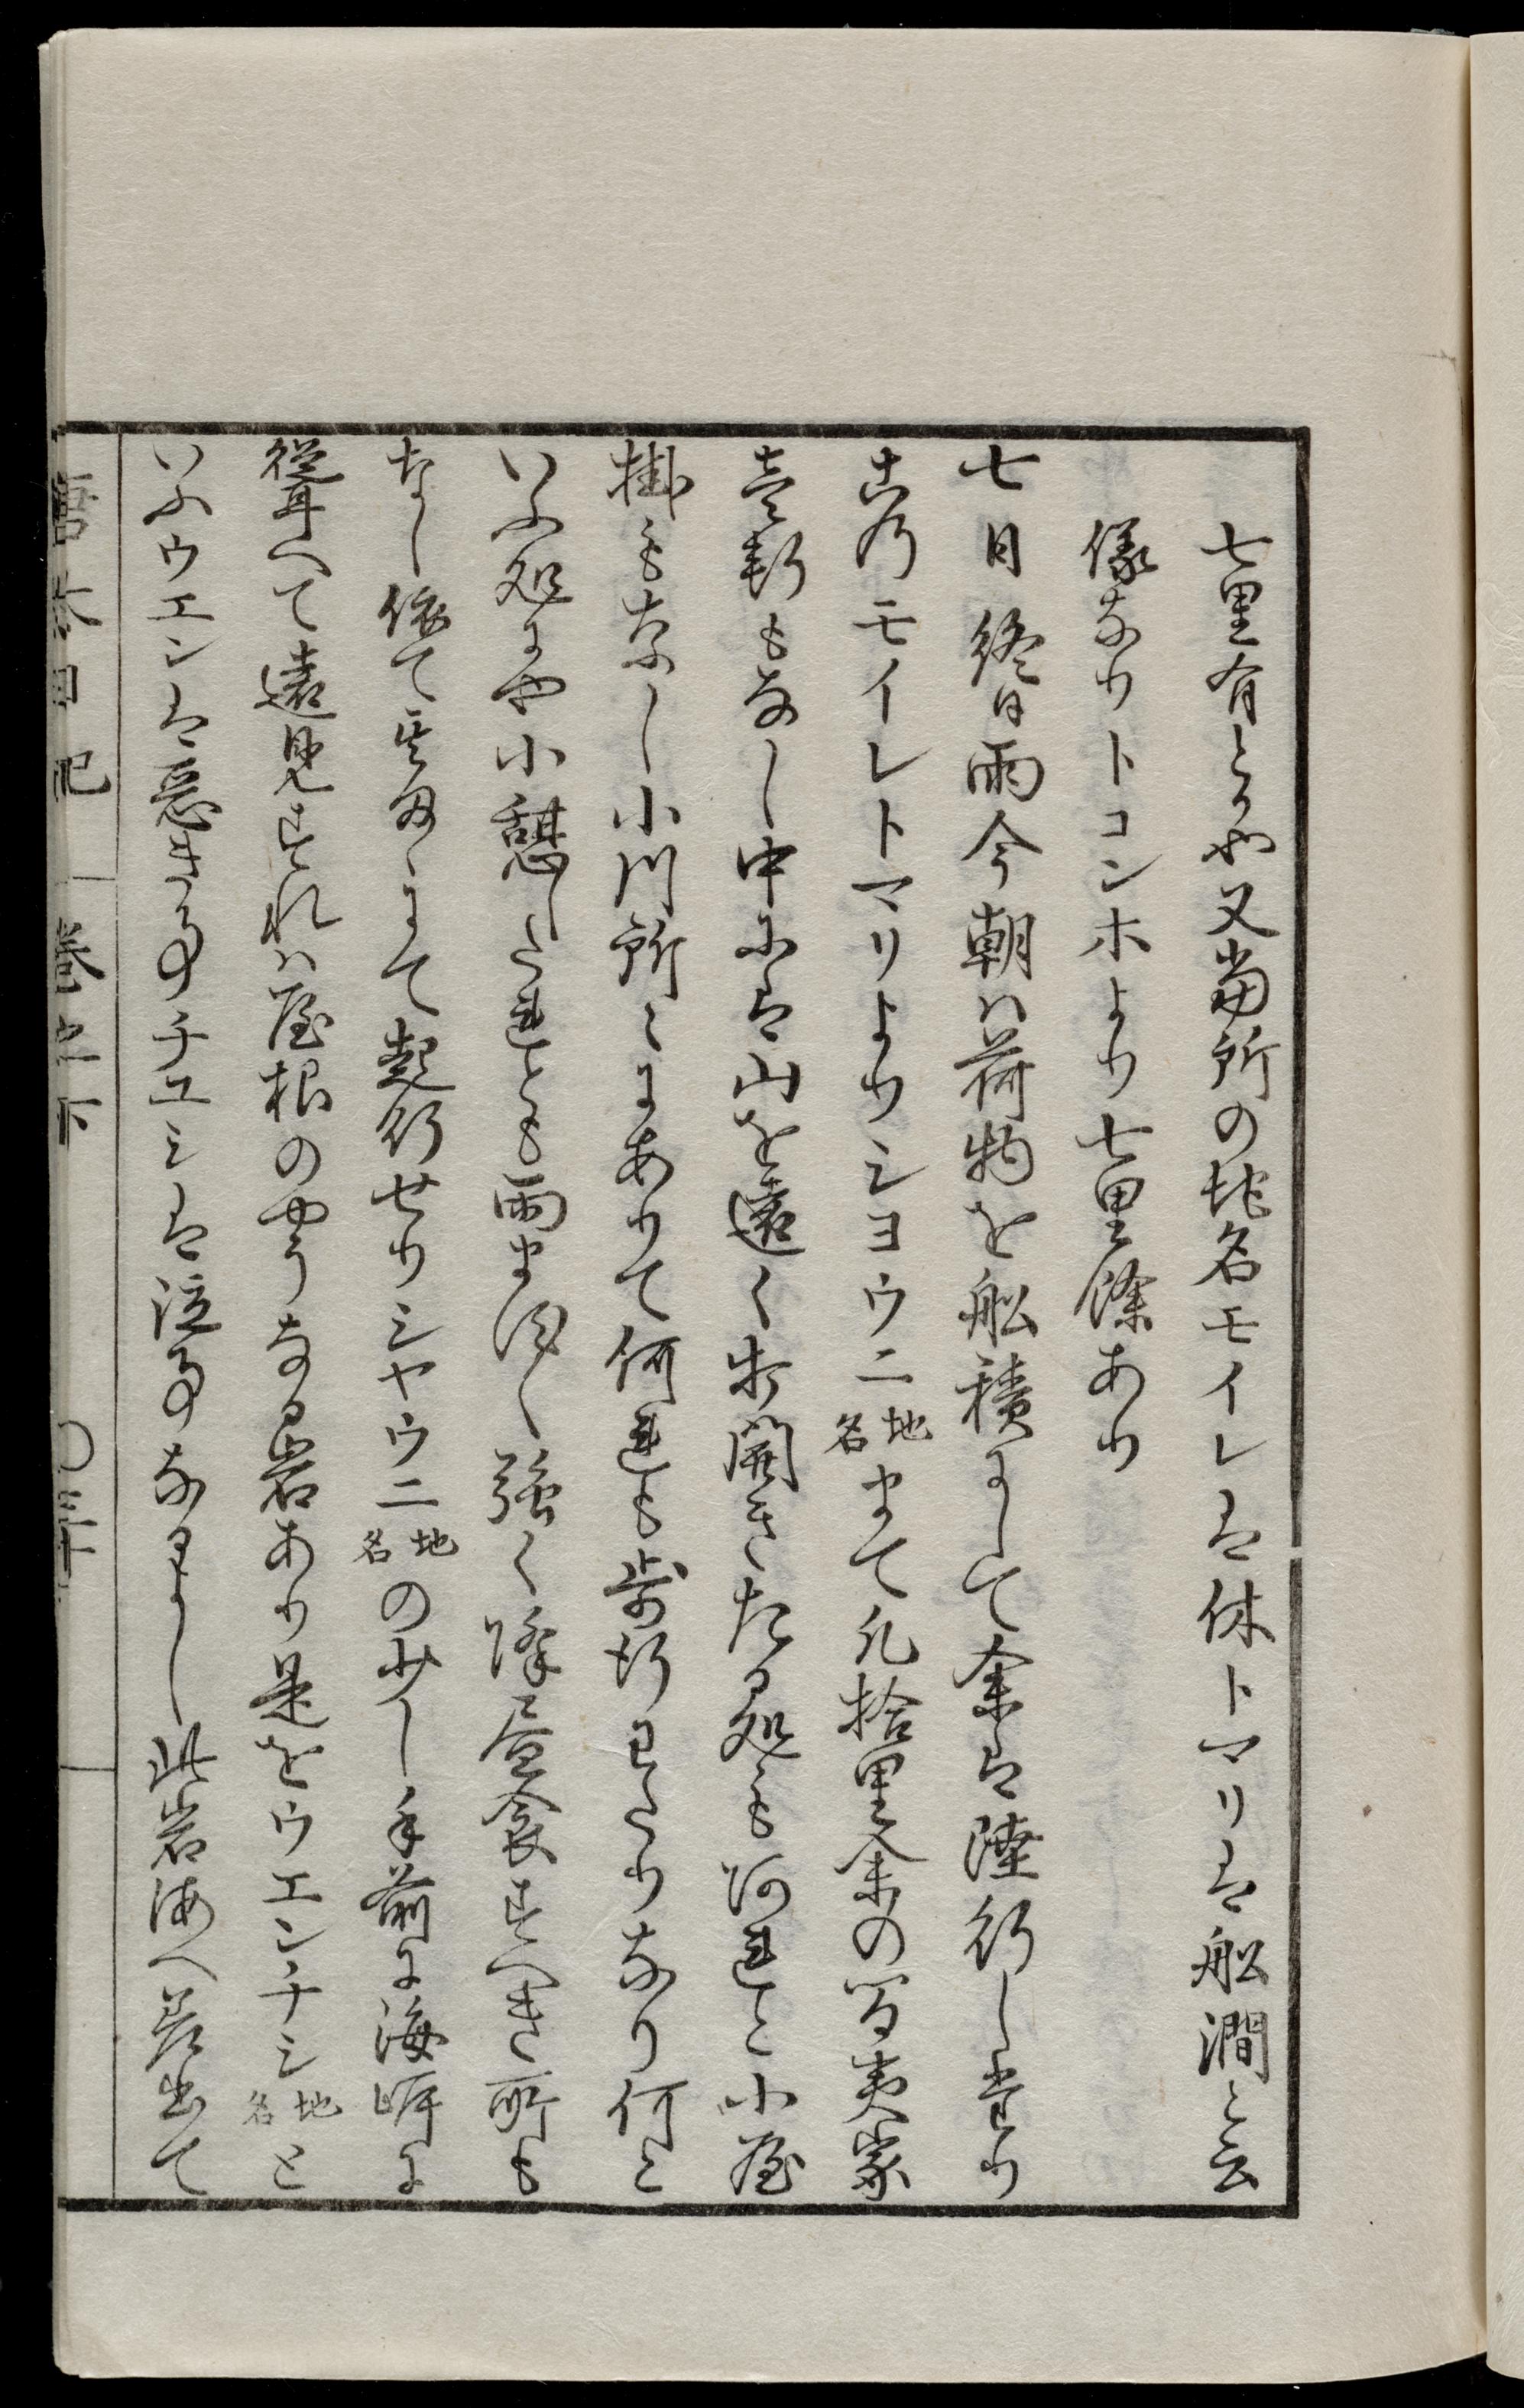 七里有とか也又當所の地名モイレは休トマリは舩澗と云
儀なりトコンホより七里餘あり
七日終日雨今朝ハ荷物を舩積にして余は陸行し岩
モイレトマリよりシヨウニ地名まて凡拾里余の間夷家
壱軒もなし中には山を遠く打開きたる処も河邊に小屋
掛もなし小川所々にありて何連も歩行わたりなり何と
いふ処にや小憩したれとも雨ます〳〵強く降昼食すへき所も
なし依て其まゝにて起行せりシヤウニ地名の少し手前に海岸に
聳へて遠見すれハ屋根のやうなる岩あり是をウエンチシ地名と
いふウエンは悪き事チエシは泣事なるよし此岩海へ差出て
唐太日記 巻之下 〇三十